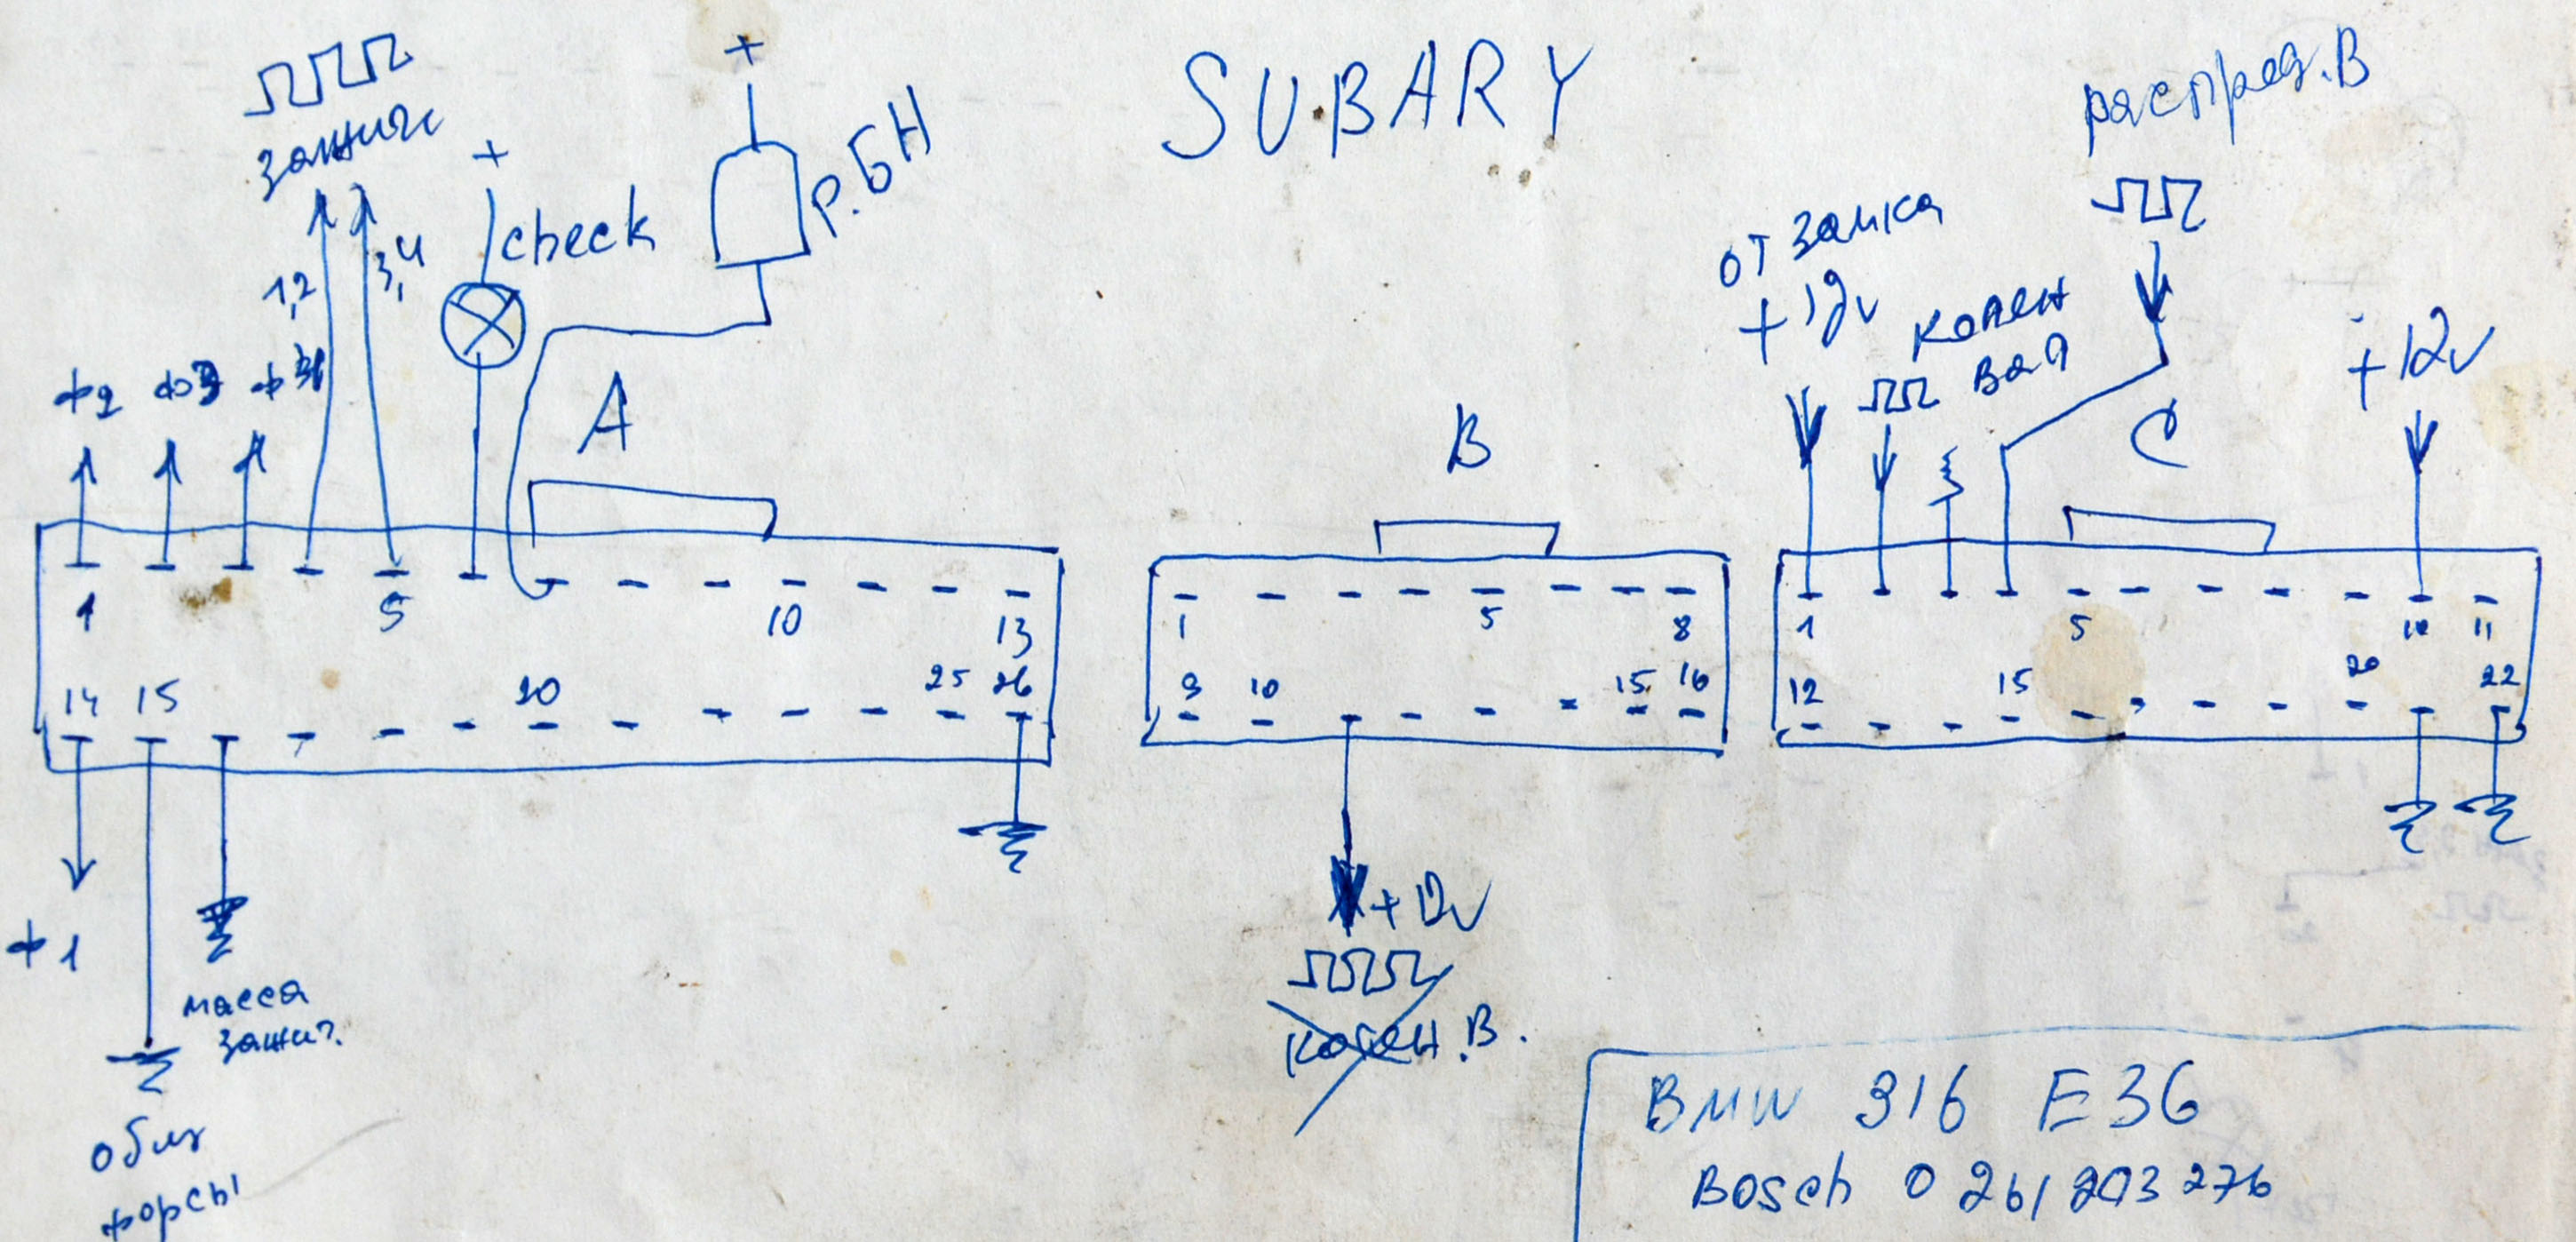 SUBARY
зажиг
+
+
распред.В
check
Р.БН
1,2
3,4
от замка
+12v
колен
вал
+12v
ф2
ф3
A
B
C
1
5
10
13
14
15
20
25
26
1
5
8
9
10
15
16
1
5
10
11
12
15
20
22
ф1
масса
зажиг.
форсы
+12v
колен.В.
BMW 316 E36
Bosch 0 261 203 276